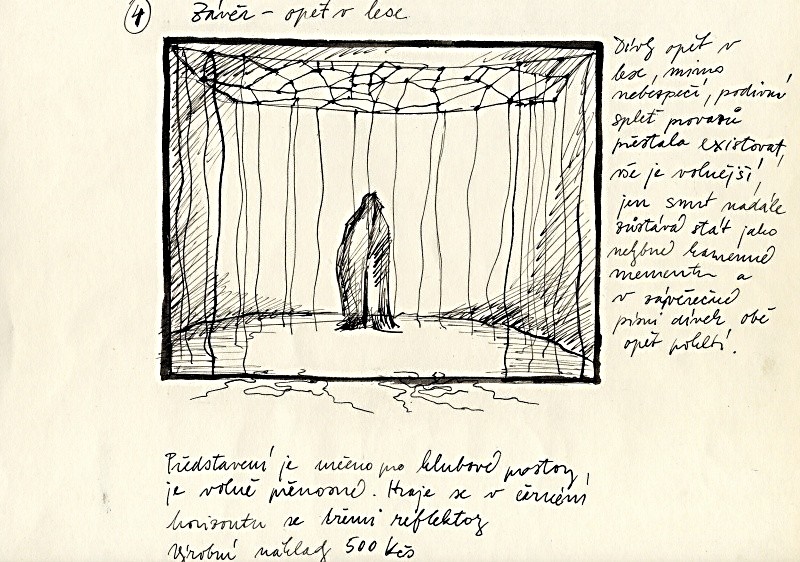 4 Závěr - opět v lese
Dívky opět v
lese, mimo
nebezpečí, podivná
spleť provazů
přestala existovat,
vše je volnější,
jen smrt nadále
zůstává stát jako
nehybné kamenné
memento a
v závěrečné
písni dívek obě
opět pohltí.
Představení je určeno pro klubové prostory,
je volně přenosné. Hraje se v černém
horizontu se třemi reflektory
Výrobní náklady 500 Kčs